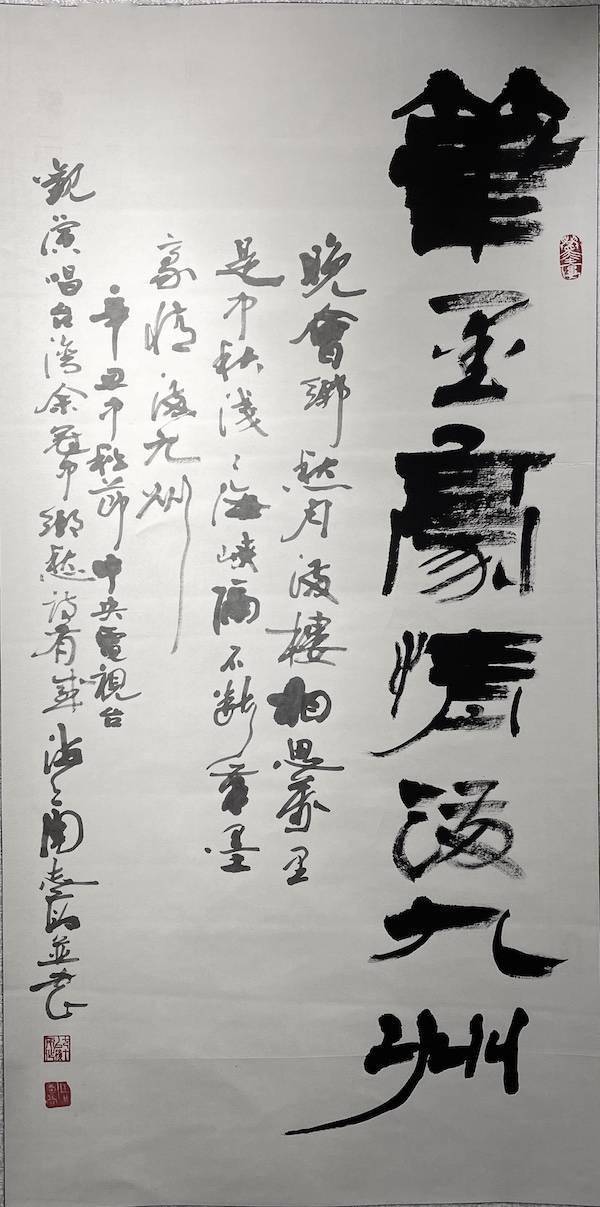 筆墨豪情滿九州
晚會鄉愁月滿樓相思萬里
是中秋淺淺海峽隔不斷筆墨
豪情滿九州
辛丑中秋節中央電視台
觀演唱台灣余冠中鄉愁詩有感 並書